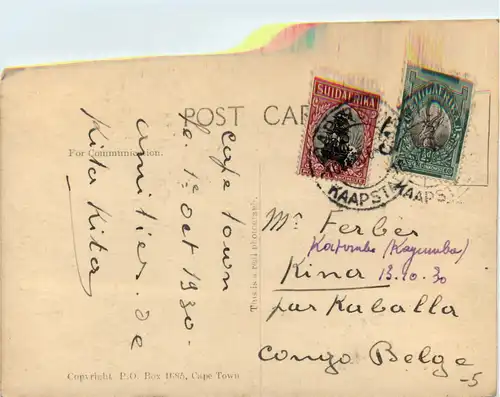 POST CAR
For Communication.
Cape Town
le 1e Oct 1930.
amitiés de
Kita Kita
This is a real photograph.
Copyright P.O. Box 1685, Cape Town
SUIDAFRIKA
KAAPST
KAAPS
Mr Ferber
Katombe (Kayumba)
Kina 13.10.30
par Kaballa
Congo Belge
-5